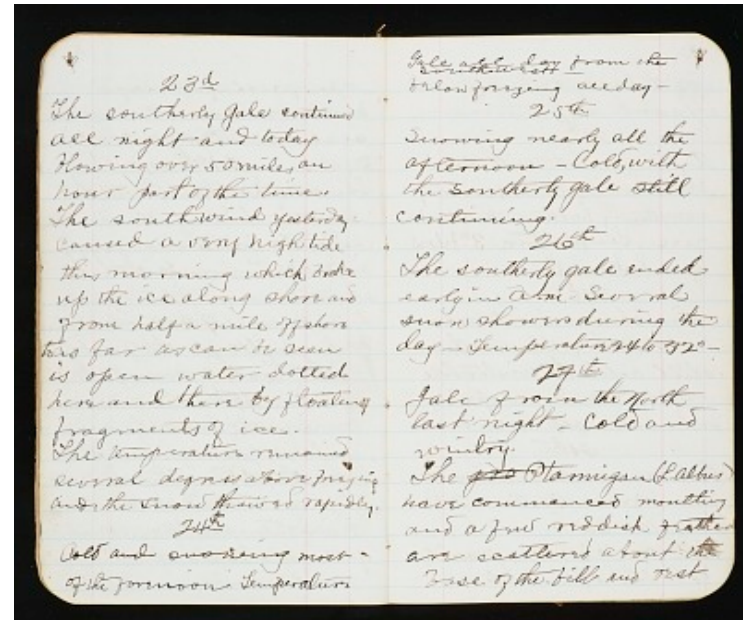 23d
The southerly gale continued
all night and today
Howing over 50 miles an
hour part of the time.
The south wind yesterday
caused a very high tide
this morning which broke
up the ice along shore and
from half a mile off shore
as far as can be seen
is open water dotted
here and there by floating
fragments of ice.
The temperature remained
several degrees above freezing
and the snow thawed rapidly.
24th
Cold and snowing most
of the forenoon Temperature
Gale all day from the
southwest
below freezing all day -
25th
Snowing nearly all the
afternoon - Cold, with
the southerly gale still
continuing.
26th
The southerly gale ended
early in a.m. Several
snow showers during the
day - Temperature 24 to 32° -
27th
Gale from the North
last night - Cold and
wintry.
The Ptarmigan (L. albus)
have commenced moulting
and a few reddish feathers
are scattered about the
base of the bill and rest